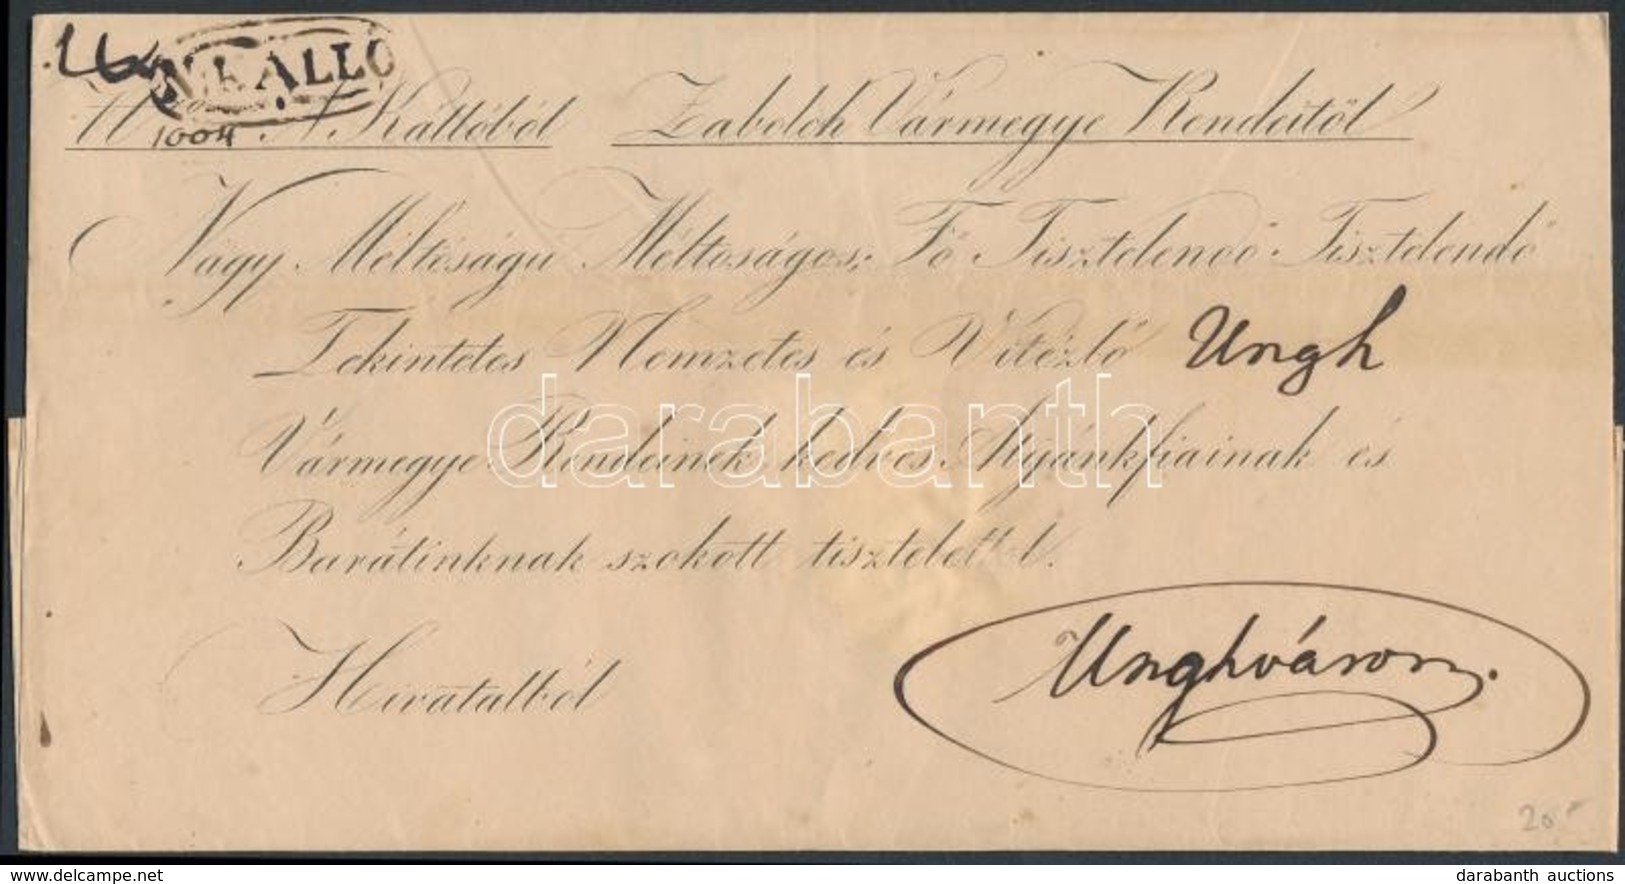 N. KÁLLÓ
1004. N. Kállóból Zabolch Vármegye Rendeitöl
Nagy Méltóságu Méltoságos, Fö Tisztelendö Tisztelendö
Tekintetes Nemzetes és Vitézlö Ungh
Vármegye Rendeinek kedves Attyánkfiainak és
Barátinknak szokott tisztelettel.
Hivatalból
Unghváron.
20.-
darabanth
delcampe.net
darabanth auctions